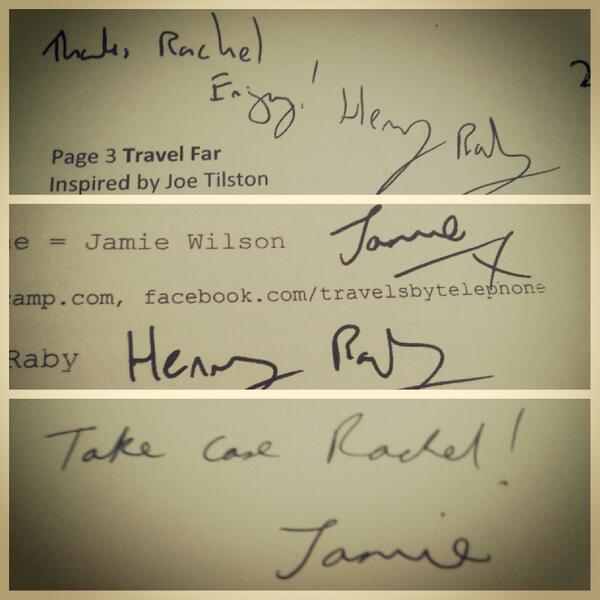 Thanks, Rachel
Enjoy! Henry Raby
2
Page 3 Travel Far
Inspired by Joe Tilston
e = Jamie Wilson Jamie x
camp.com, facebook.com/travelsbytelephone
Raby Henry Raby
Take care Rachel!
Jamie